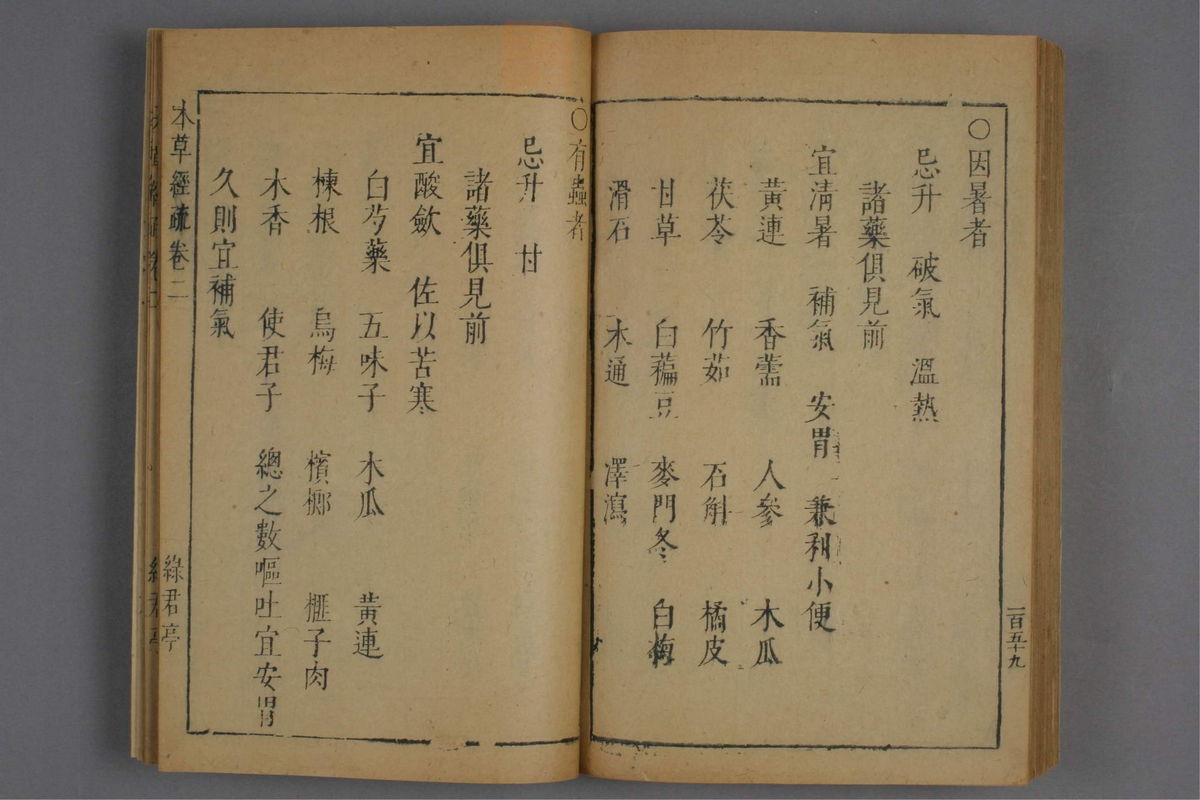 ○因暑者
忌升　破氣　溫熱
諸藥俱見前
宜清暑　補氣　安胃　兼利小便
黃連　香薷　人參　木瓜
茯苓　竹茹　石斛　橘皮
甘草　白藊豆　麥門冬　白梅
滑石　木通　澤瀉
一百五十九
○有蟲者
忌升　甘
諸藥俱見前
宜酸歛　佐以苦寒
白芍藥　五味子　木瓜　黃連
楝根　烏梅　檳榔　榧子肉
木香　使君子　總之數嘔吐宜安胃
久則宜補氣
本草經疏卷二　綠君亭